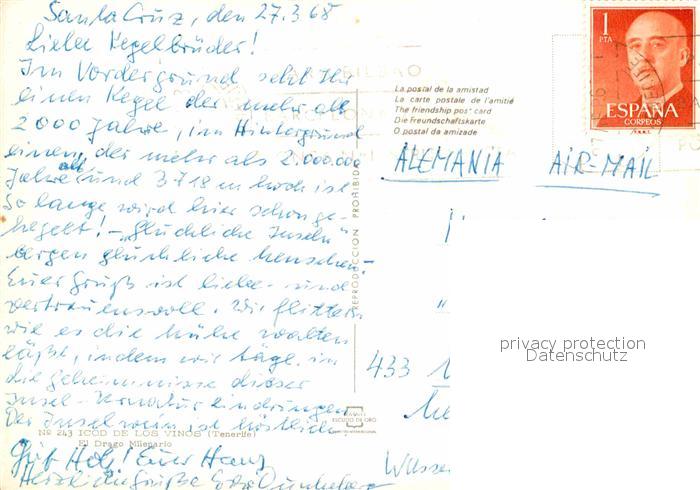 Santa Cruz, den 27.3.68
Liebe Kegelbrüder!
Im Vordergrund seht Ihr
einen Kegel der mehr als
2000 Jahre, im Hintergrund
einen, der mehr als 2.000.000
Jahre alt und 3718 m hoch ist
So lange wird hier schon ge-
kegelt! - „Glückliche Inseln"
bergen glückliche Menschen!
Euer Gruß ist liebe- und
vertrauensvoll. Wir flittern
wie es die Mühe walten
läßt, indem wir tägl. in
die Geheimnisse dieser
Insel-Urnatur eindringen
Der Inselwein ist köstlich
Nº 243 ICOD DE LOS VINOS (Tenerife)
El Drago Milenario
Gut Holz! Euer Hans
Herzliche Grüße
REPRODUCCION PROHIBIDA
ESCUDO DE ORO
BILBAO
La postal de la amistad
La carte postale de l'amitié
The friendship post card
Die Freundschaftskarte
O postal da amizade
1
PTA
ESPAÑA
CORREOS
ALEMANIA AIR-MAIL
433
privacy protection
Datenschutz